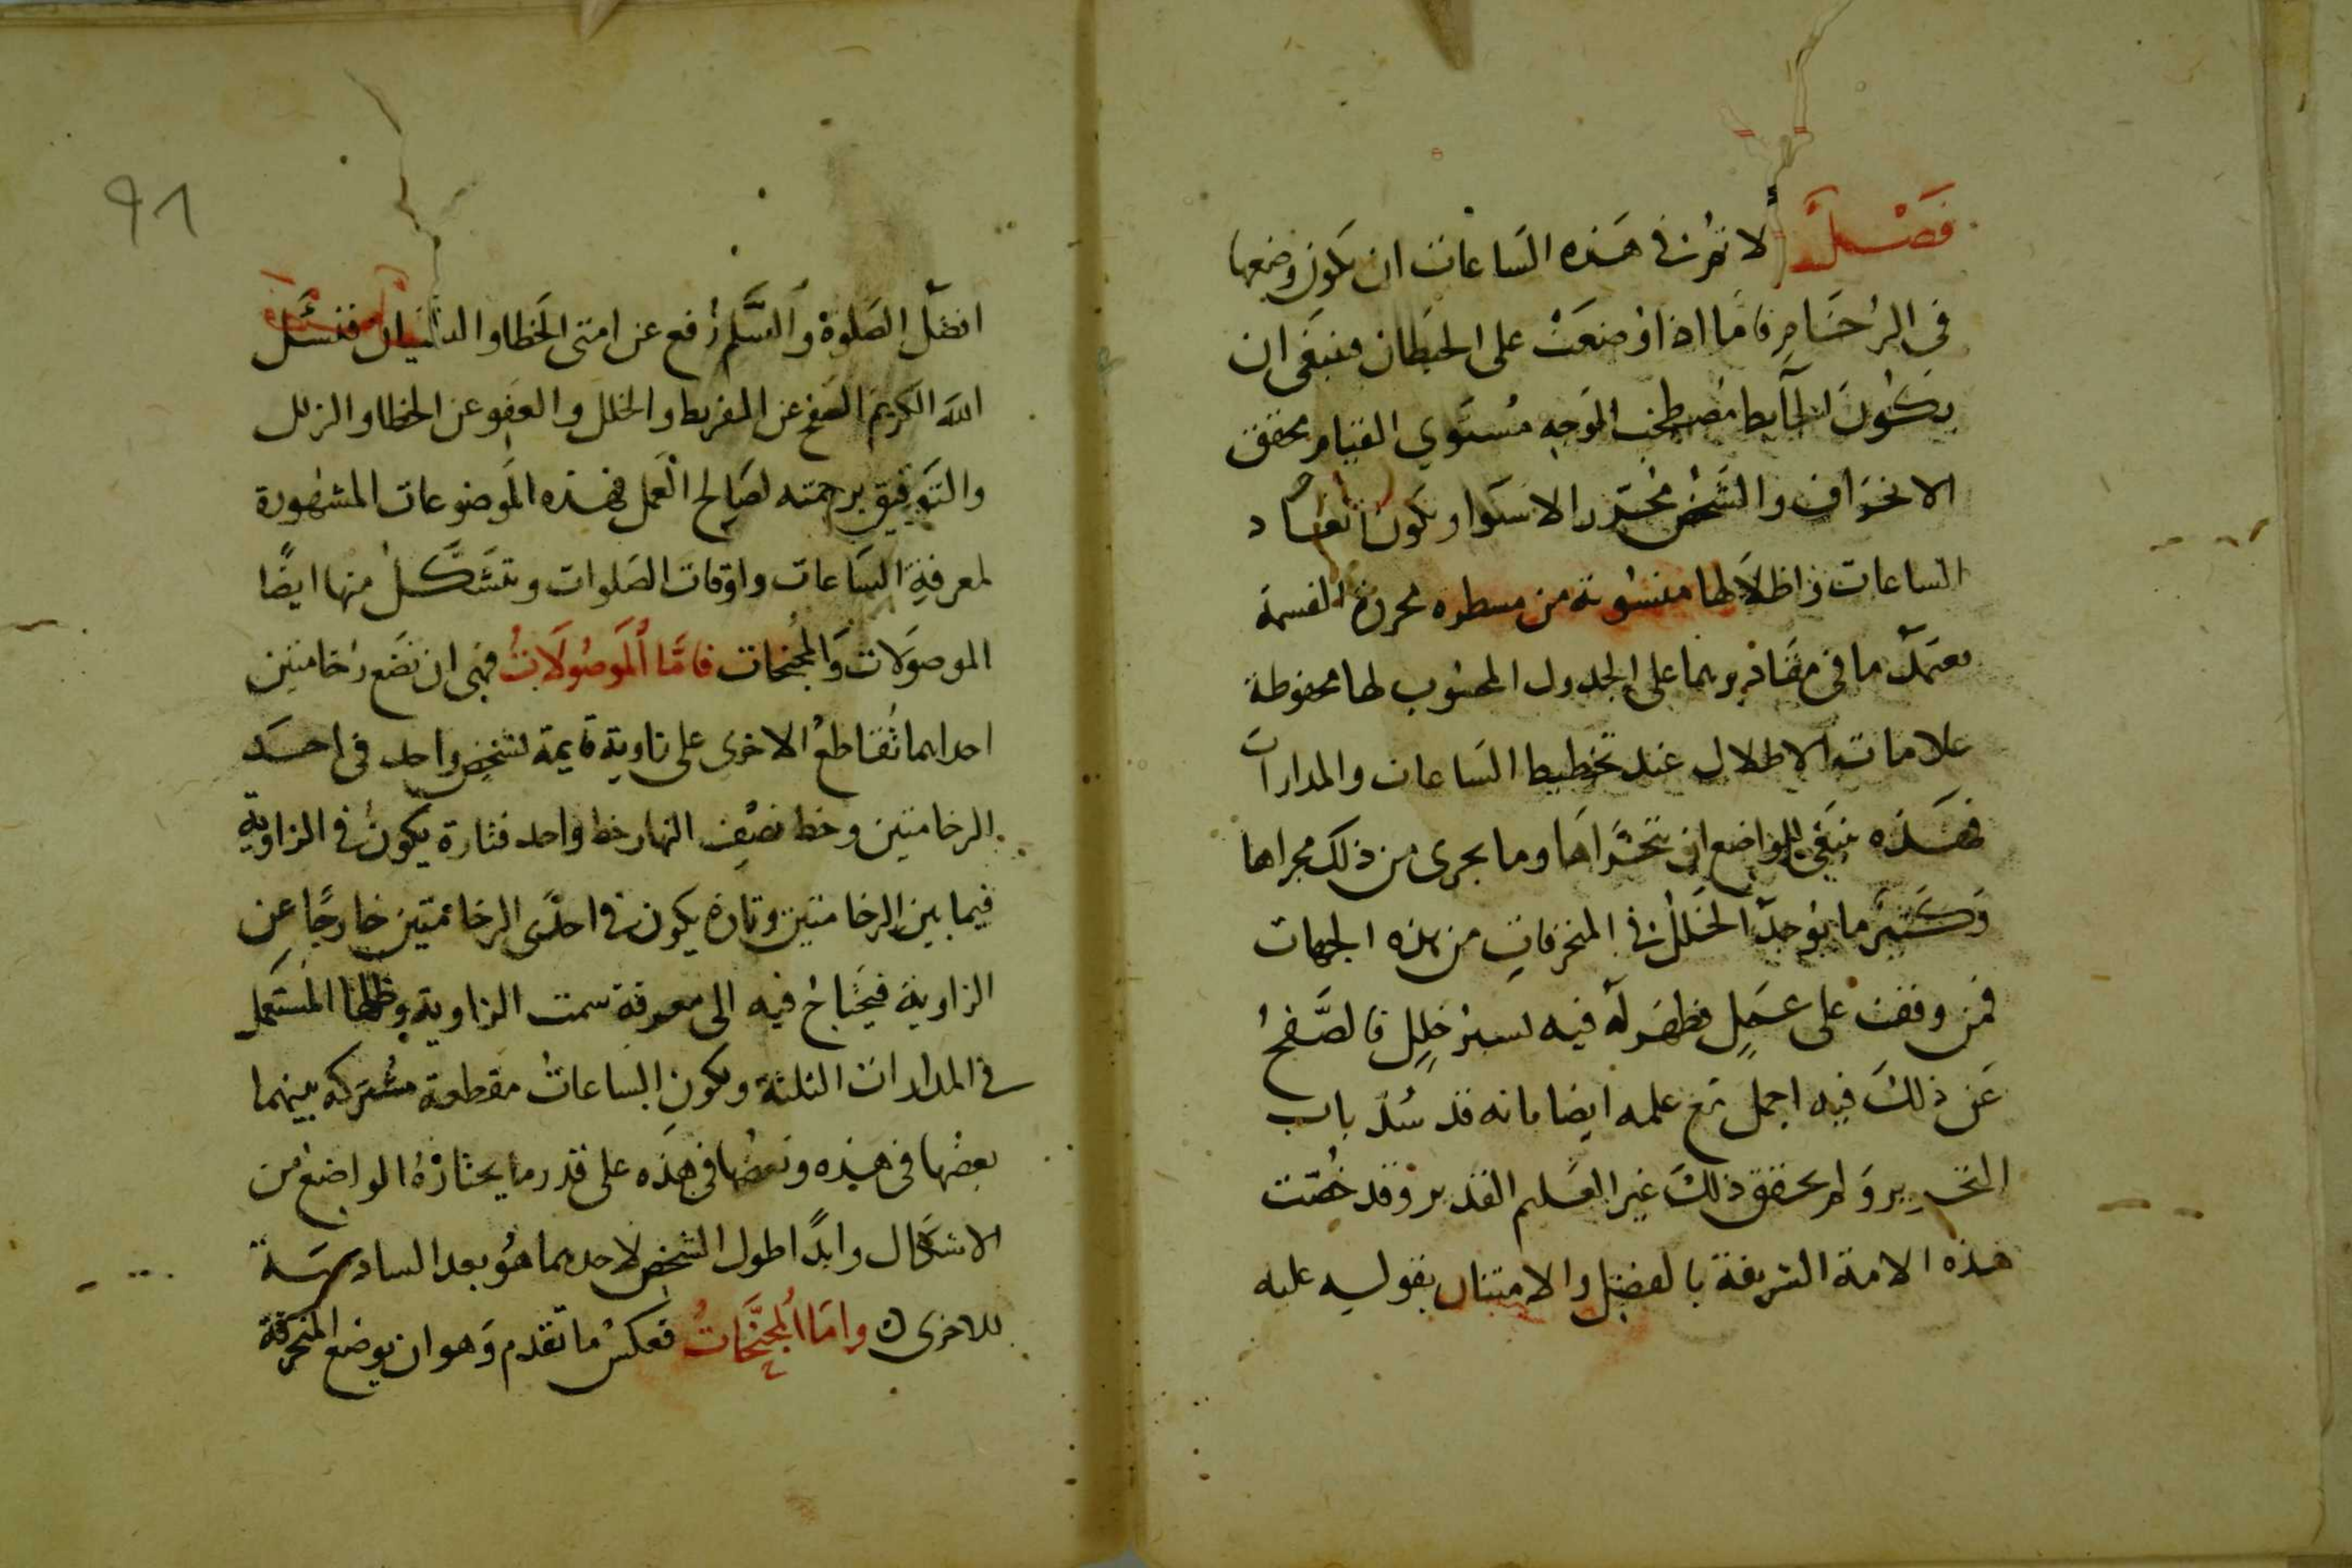 فصل لا تمرن في هذه الساعات ان يكون وضعها
في الرخام فاما اذا وضعت على الحيطان فينبغى ان
يكون الحآيط مصطحب الوجه مستوي القيام محقق
الانحراف والشخص محترر الاستوا ويكون ابعاد
الساعات واظلالها منسوبة من مسطره محررة القسمة
يعتمد ما في مقاديرهما على الجدول المحسوب لها محفوظة
علامات الاظلال عند تخطيط الساعات والمدارات
فهذه ينبغي للواضع ان يتحراها وما يجرى من ذلك مجراها
وكثير ما يوجد الخلل في المنحرفات من هذه الجهات
فمن وقف على عمل فظهر له فيه يسير خلل فالصفح
عن ذلك فيه اجمل مع علمه ايضا بانه قد سد باب
التحرير ولم يحقق ذلك غير العليم القدير وقد خصت
هذه الامة الشريفة بالفضل والامتنان بقوله عليه
91
افضل الصلوة والسلم رفع عن امتى الخطا والنسيان فنسئل
الله الكريم الصفح عن التفريط والخلل والعفو عن الخطا والزلل
والتوفيق برحمته لصالح العمل فهذه الموضوعات المشهورة
لمعرفة الساعات واوقات الصلوات وتتشكل منها ايضًا
الموصولات والمجنحات فامّا الموصولات فهى ان تضع رخامتين
احداهما تقاطع الاخرى على زاوية قايمة لشخص واحد فى احد
الرخامتين وخط نصف النهار خط واحد فتارة يكون في الزاوية
فيما بين الرخامتين وتارة يكون في احدى الرخامتين خارجًا عن
الزاوية فيحتاج فيه الى معرفة سمت الزاوية وظلها المستعمل
في المدارات الثلثة ويكون الساعات مقطعة مشتركة بينهما
بعضها في هذه وبعضها في هذه على قدر ما يختارة الواضع من
الاشكال وابدًا اطول الشخص لاحدهما هو بعد السادسة
للاخرى وامّا المجنّحات فعكس ما تقدم وهو ان يوضع المنحرفة